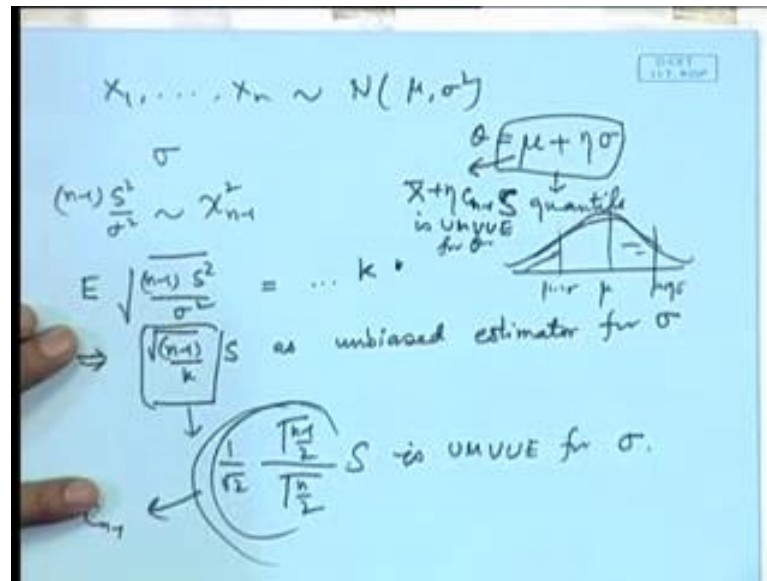 X₁, ..., Xₙ ~ N(μ, σ²)
σ
θ = μ + ησ
(n-1) S²/σ² ~ χ²ₙ₋₁
X̄ + η Cₙ₋₁ S quantile
is UMVUE
for θ
E √((n-1) S²/σ²) = ... k
μ-σ μ μ+ησ
⇒ √(n-1)/k S as unbiased estimator for σ
1/√2 Γ(n-1)/2 / Γn/2 S is UMVUE for σ.
Cₙ₋₁